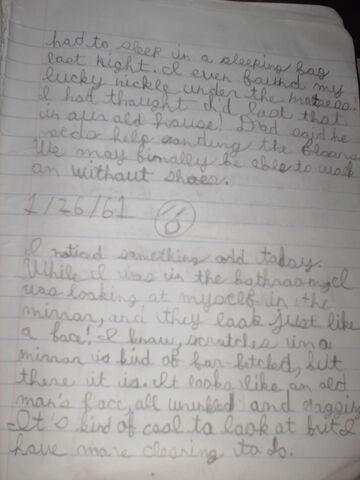 had to sleep in a sleeping bag
last night. I even found my
lucky nickle under the matress.
I had thought I'd lost that
in our old house! Dad said he
needs help sanding the floors.
We may finally be able to walk
on without shoes.
1/26/61 6
I noticed something odd today.
While I was in the bathroom, I
was looking at myself in the
mirror, and they look just like
a face! I know, scratches in a
mirror is kind of far fetched, but
there it is. It looks like an old
man's face, all wrinkled and
It's kind of cool to look at but I
have more cleaning to do.